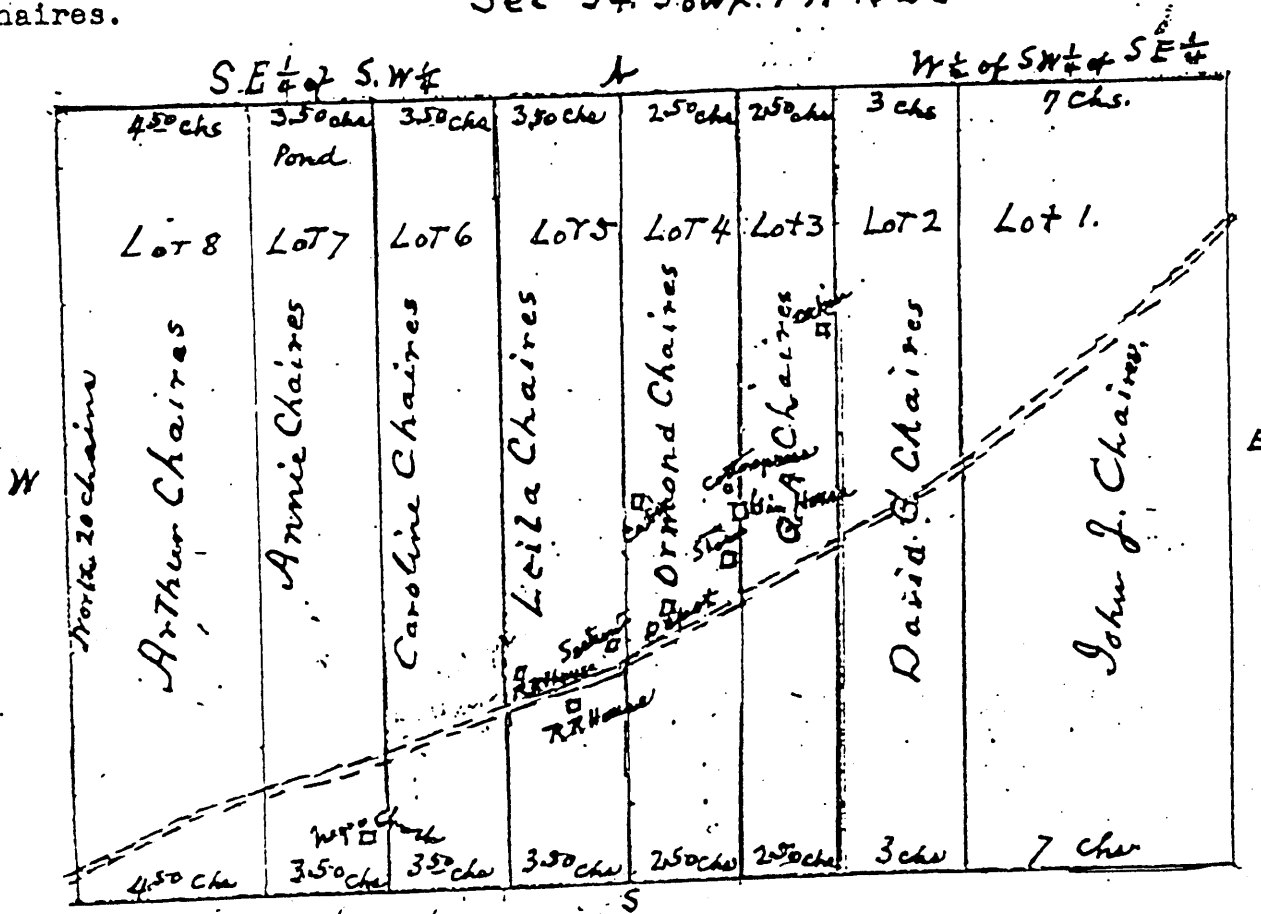 haires.
Sec 34.
S.E ¼ of S.W ¼
W ½ of SW ¼ of S E ¼
4.50 chs 3.50 chs 3.50 chs 3.50 chs 2.50 chs 2.50 chs 3 chs 7 chs.
Pond
LoT 8 LoT 7 LoT 6 LoT 5 LoT 4 Lot 3 LoT 2 Lot 1.
W
North 20 chains
Arthur Chaires
Annie Chaires
Caroline Chaires
Leila Chaires
Ormond Chaires
Chaires
David G Chaires
John J. Chaires.
E
Cotton press
Gin House
Cabin
Store
Depot
Section
RR House
RR House
Church
4.50 chs 3.50 chs 3.50 chs 3.50 chs 2.50 chs 2.50 chs 3 chs 7 chs
S